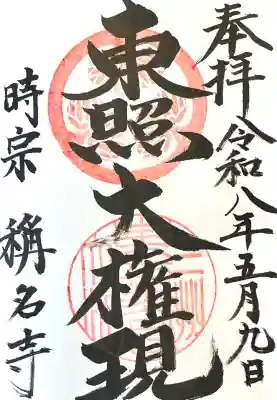 奉拝 令和八年五月九日
東照大権現
時宗 稱名寺